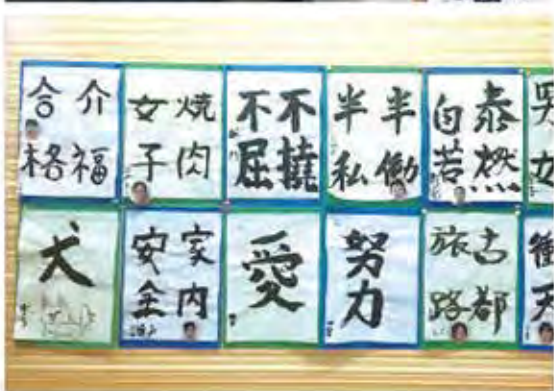 介福
合格
焼肉
女子
不撓
不屈
半働
半私
泰然
自若
犬
家内
安全
愛
努力
古都
旅路